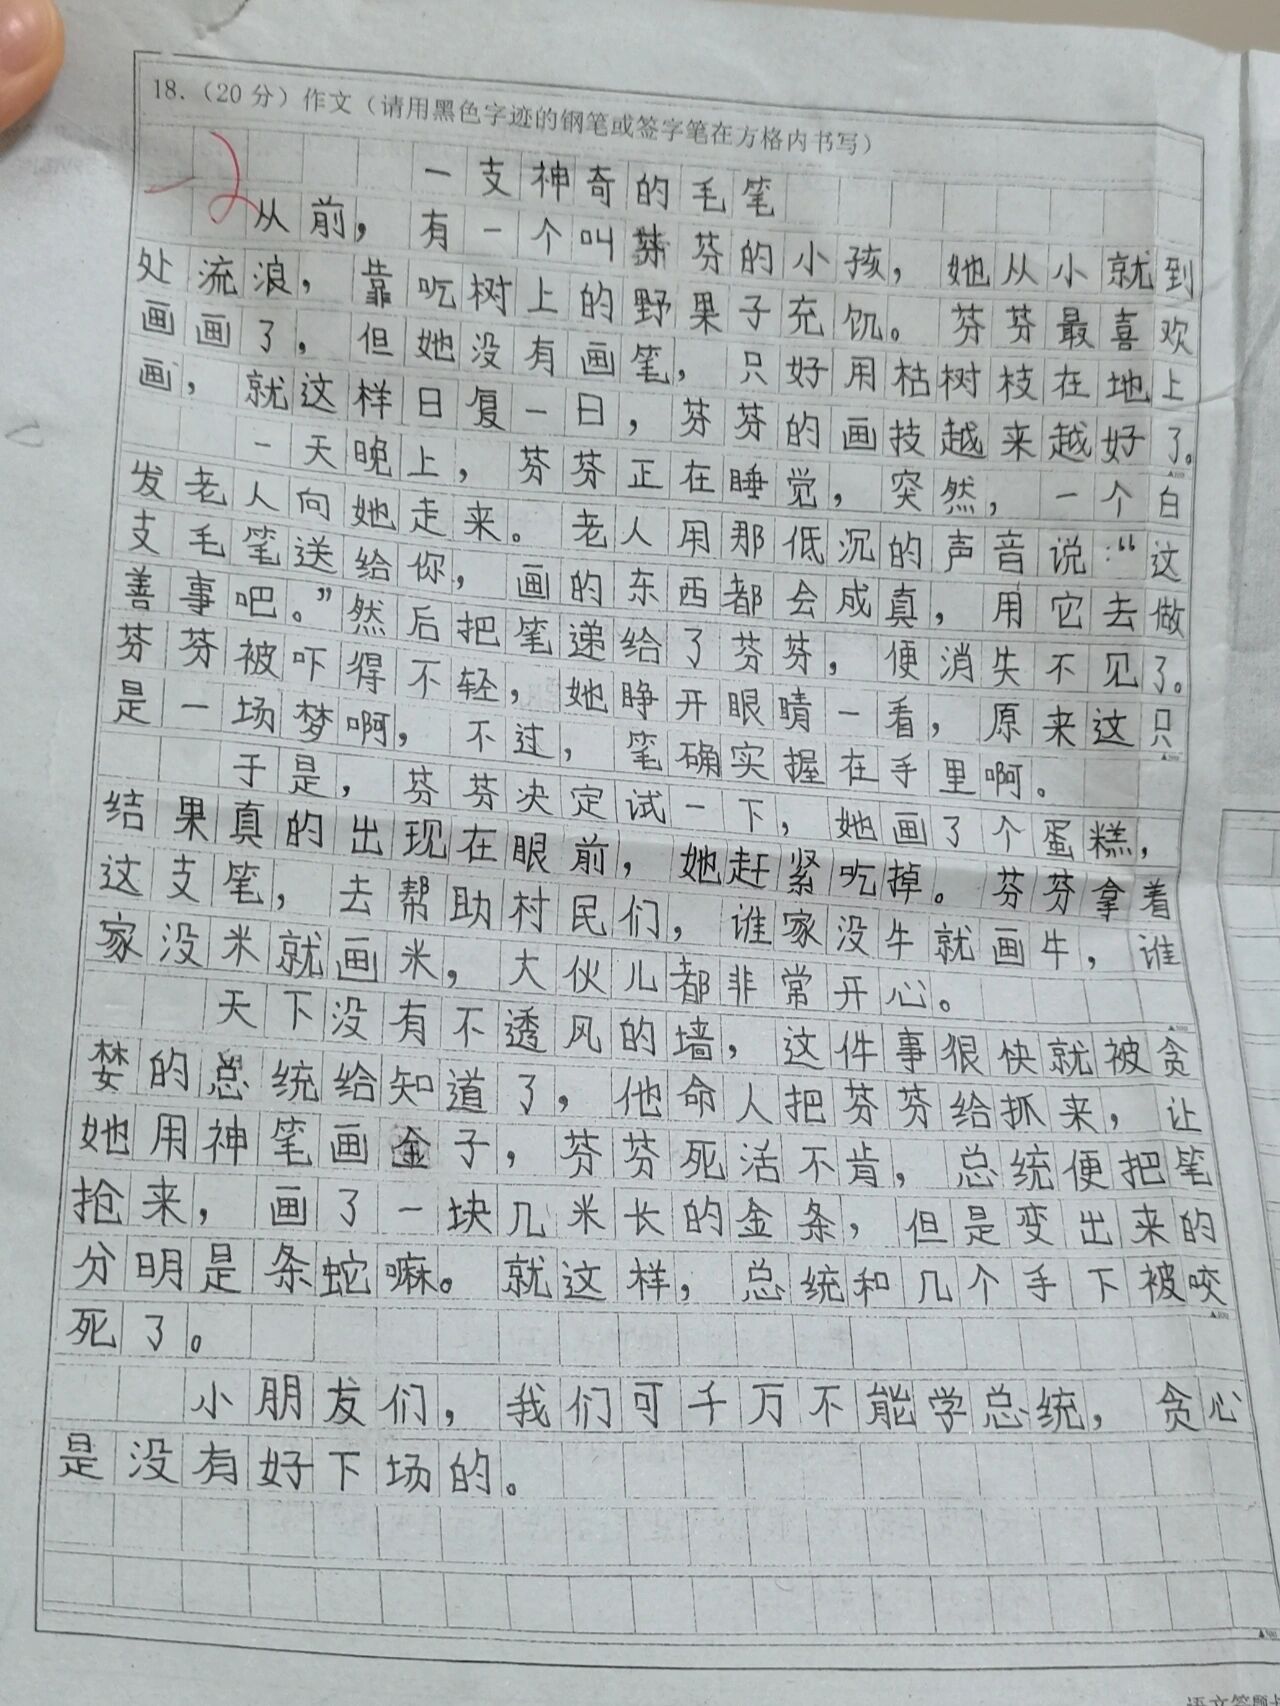 18.（20分）作文（请用黑色字迹的钢笔或签字笔在方格内书写）
-2
一支神奇的毛笔
从前，有一个叫芬芬的小孩，她从小就到
处流浪，靠吃树上的野果子充饥。芬芬最喜欢
画画了，但她没有画笔，只好用枯树枝在地上
画，就这样日复一日，芬芬的画技越来越好了。
一天晚上，芬芬正在睡觉，突然，一个白
发老人向她走来。老人用那低沉的声音说：“这
支毛笔送给你，画的东西都会成真，用它去做
善事吧。”然后把笔递给了芬芬，便消失不见了。
芬芬被吓得不轻，她睁开眼睛一看，原来这只
是一场梦啊，不过，笔确实握在手里啊。
于是，芬芬决定试一下，她画了个蛋糕，
结果真的出现在眼前，她赶紧吃掉。芬芬拿着
这支笔，去帮助村民们，谁家没牛就画牛，谁
家没米就画米，大伙儿都非常开心。
天下没有不透风的墙，这件事很快就被贪
婪的总统给知道了，他命人把芬芬给抓来，让
她用神笔画金子，芬芬死活不肯，总统便把笔
抢来，画了一块几米长的金条，但是变出来的
分明是条蛇嘛。就这样，总统和几个手下被咬
死了。
小朋友们，我们可千万不能学总统，贪心
是没有好下场的。